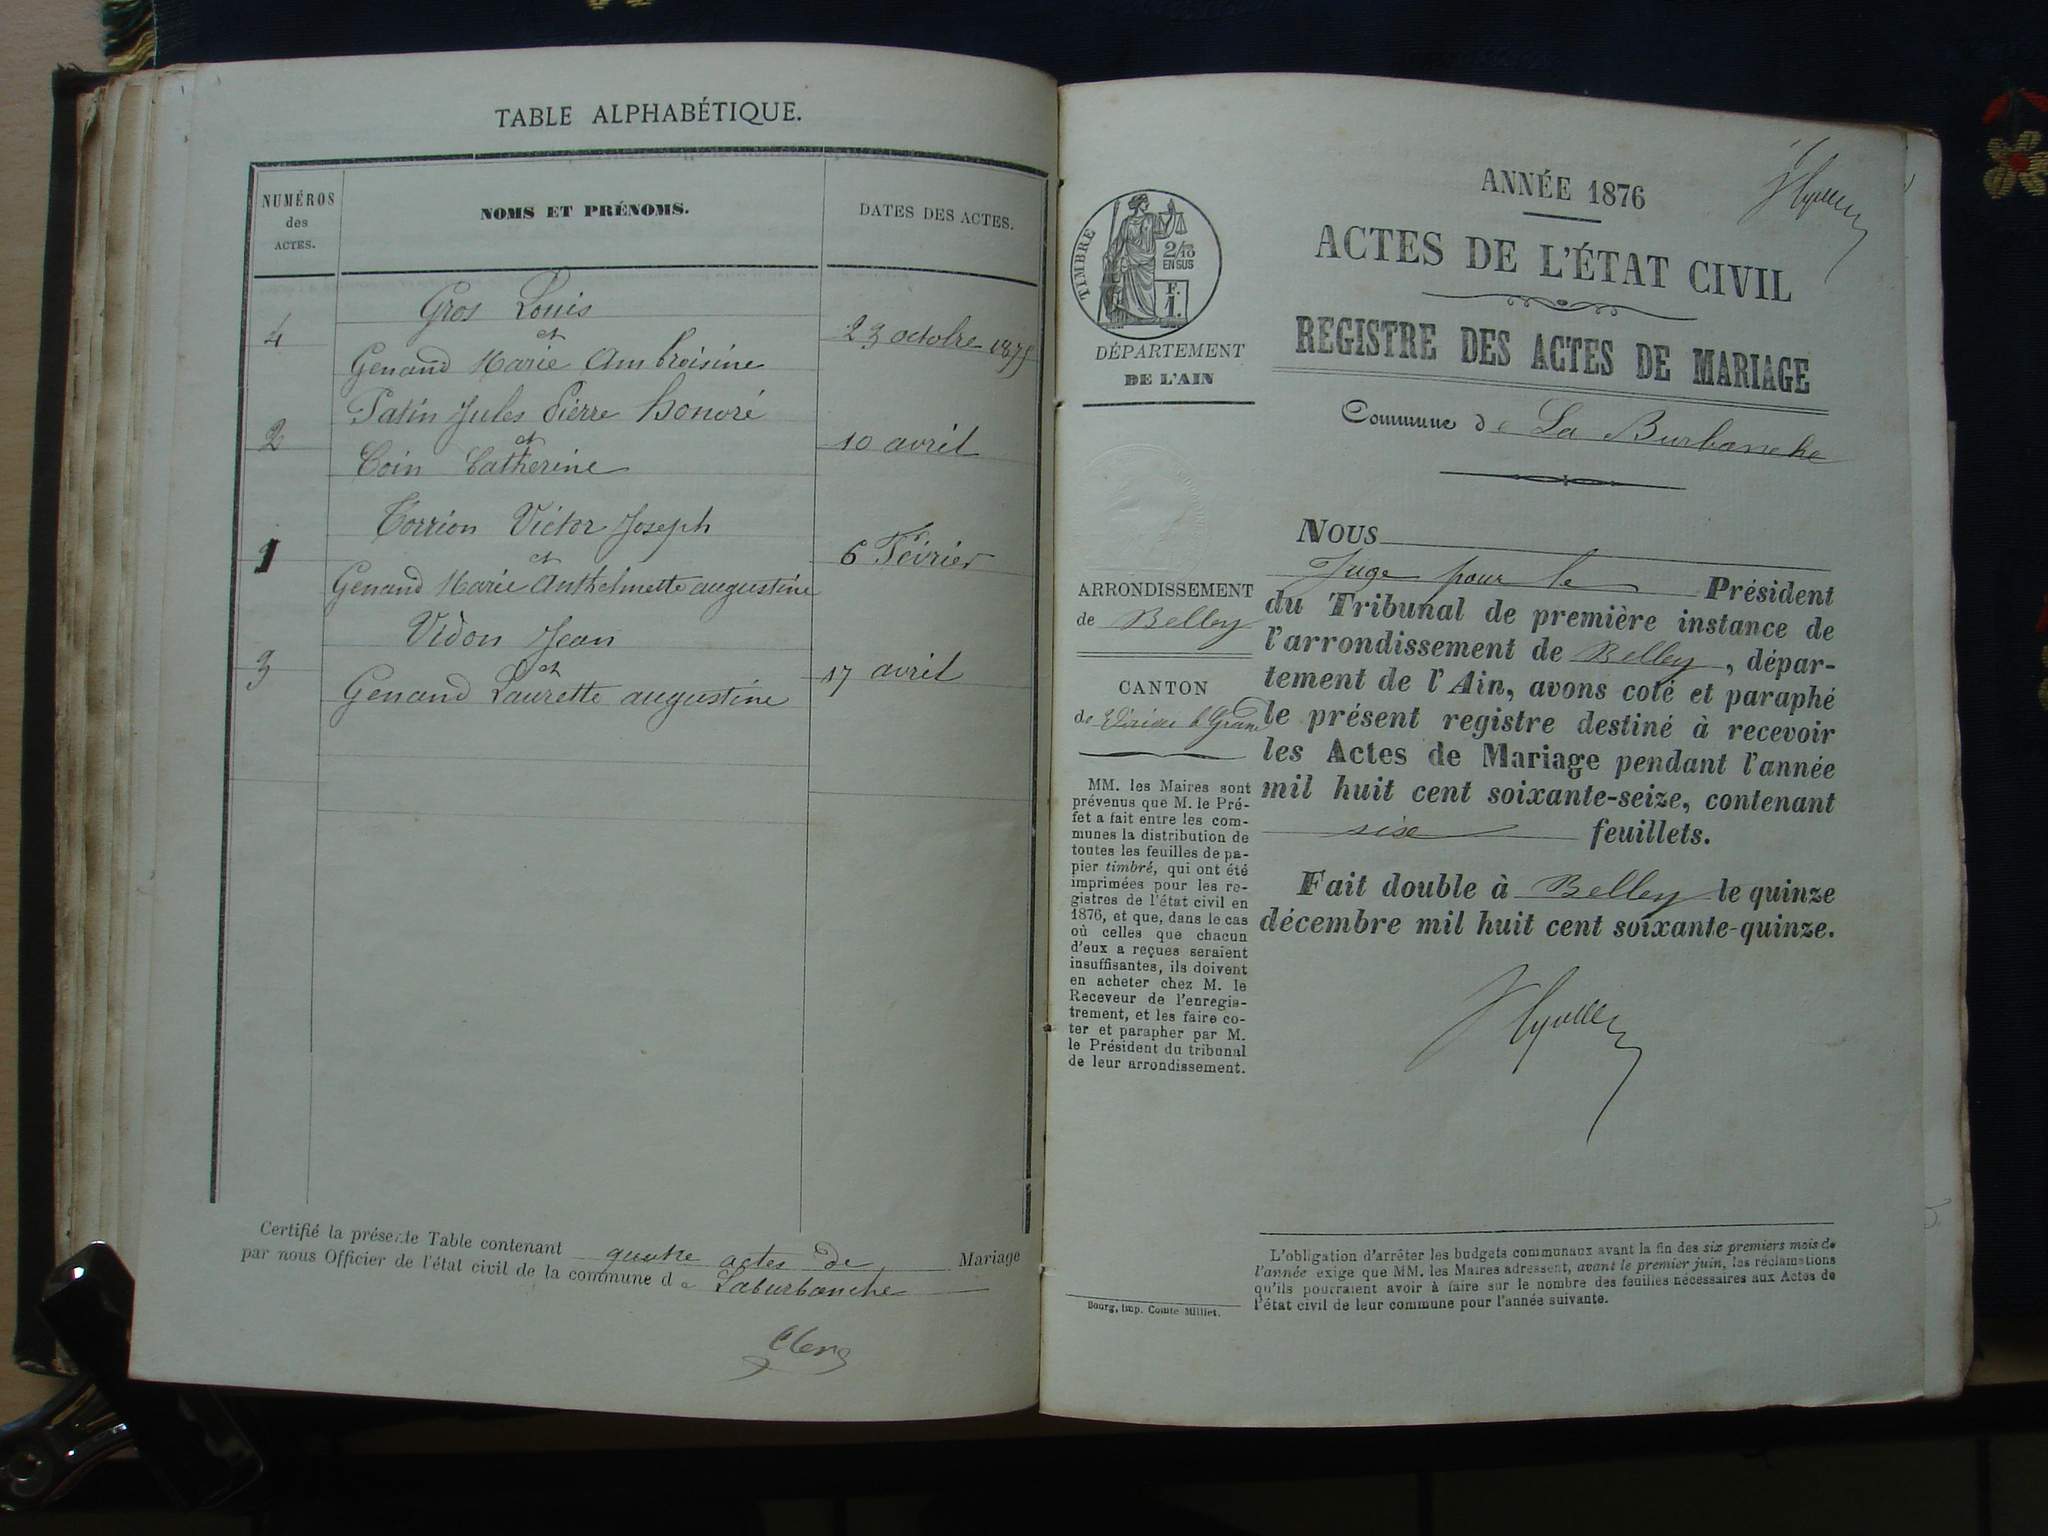 TABLE ALPHABÉTIQUE.
NUMÉROS
des
ACTES.
NOMS ET PRÉNOMS.
DATES DES ACTES.
4
Gros Louis
et
Genand Marie Ambroisine
23 octobre 1875
2
Patin Jules Pierre honoré
et
Coin Catherine
10 avril
1
Torrion Victor Joseph
et
Genand Marie Anthelmette augustine
6 Février
3
Vidon Jean
et
Genand Laurette augustine
17 avril
Certifié la présente Table contenant quatre actes de Mariage
par nous Officier de l'état civil de la commune de Laburbanche
ANNÉE 1876
ACTES DE L'ÉTAT CIVIL
REGISTRE DES ACTES DE MARIAGE
Commune de La Burbanche
TIMBRE
2/10
EN SUS
F.
1.
DÉPARTEMENT
DE L'AIN
ARRONDISSEMENT
de Belley
CANTON
de Virieu le Grand
MM. les Maires sont
prévenus que M. le Pré-
fet a fait entre les com-
munes la distribution de
toutes les feuilles de pa-
pier timbré, qui ont été
imprimées pour les re-
gistres de l'état civil en
1876, et que, dans le cas
où celles que chacun
d'eux a reçues seraient
insuffisantes, ils doivent
en acheter chez M. le
Receveur de l'enregis-
trement, et les faire co-
ter et parapher par M.
le Président du tribunal
de leur arrondissement.
Bourg, imp. Comte Milliet.
NOUS
Juge pour le Président
du Tribunal de première instance de
l'arrondissement de Belley, dépar-
tement de l'Ain, avons coté et paraphé
le présent registre destiné à recevoir
les Actes de Mariage pendant l'année
mil huit cent soixante-seize, contenant
six feuillets.
Fait double à Belley le quinze
décembre mil huit cent soixante-quinze.
L'obligation d'arrêter les budgets communaux avant la fin des six premiers mois de
l'année exige que MM. les Maires adressent, avant le premier juin, les réclamations
qu'ils pourraient avoir à faire sur le nombre des feuilles nécessaires aux Actes de
l'état civil de leur commune pour l'année suivante.